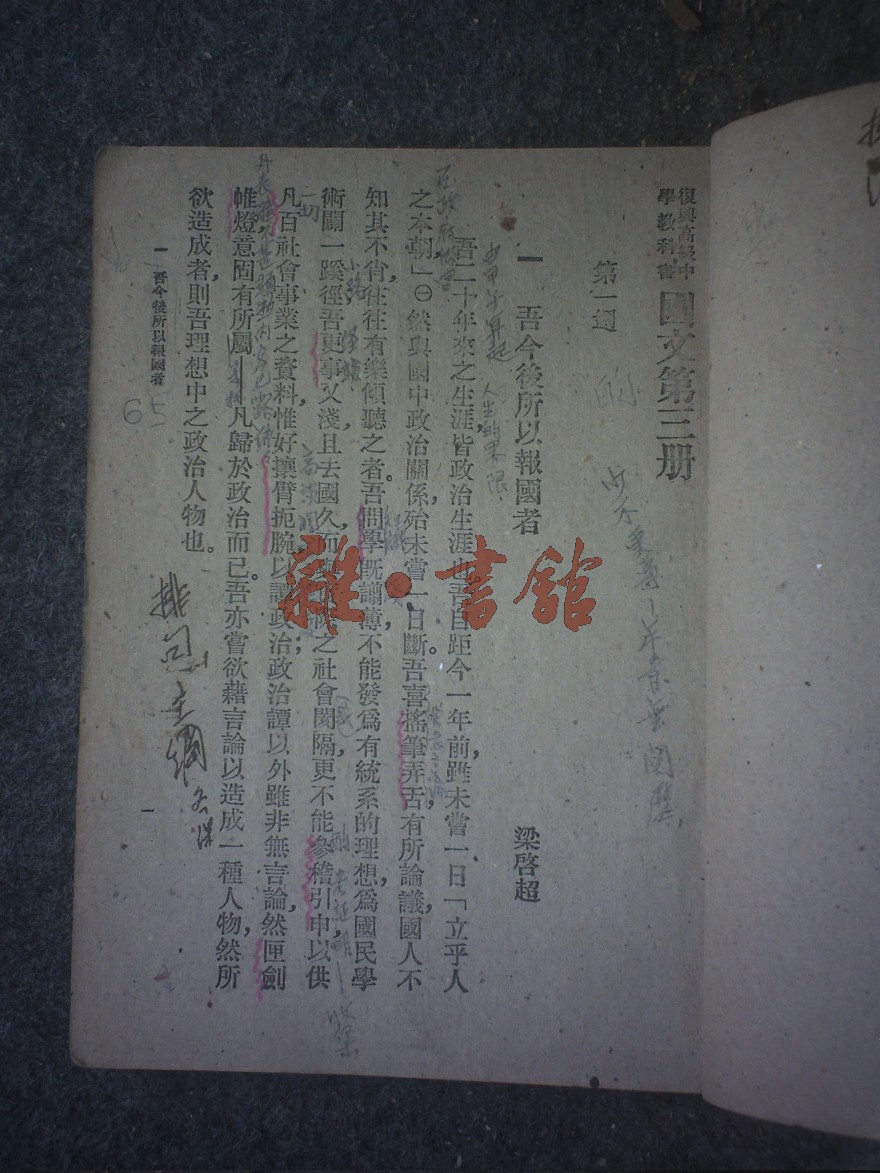 復興高級中
學教科書
國文第三册
第一週
一　吾今後所以報國者
梁啓超
吾二十年來之生涯，皆政治生涯也。吾自距今一年前，雖未嘗一日「立乎人
之本朝」㊀然與國中政治關係，殆未嘗一日斷。吾喜搖筆弄舌，有所論議，國人不
知其不肖，往往有樂傾聽之者。吾問學既譾薄，不能發爲有統系的理想，爲國民學
術闢一蹊徑；吾更事又淺，且去國久，而之社會閡隔，更不能參稽引申，以供
凡百社會事業之資料。惟好攘臂扼腕以譚政治；政治譚以外，雖非無言論，然匣劍
帷燈，意固有所屬，凡歸於政治而已。吾亦嘗欲藉言論以造成一種人物，然所
欲造成者，則吾理想中之政治人物也。
一　吾今後所以報國者
一
65
一切
小路
經驗
收集
雜·書館